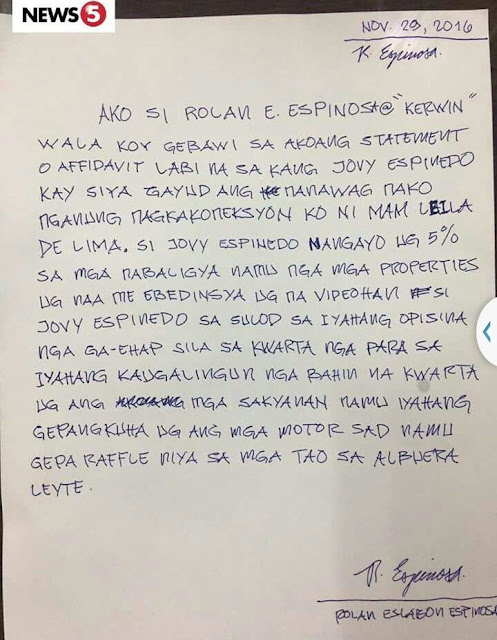 NEWS5
NOV. 29, 2016
K. Espinosa.
AKO SI ROLAN E. ESPINOSA@ "KERWIN"
WALA KOY GEBAWI SA AKOANG STATEMENT
O AFFIDAVIT LABI NA SA KANG JOVY ESPINEDO
KAY SIYA GAYUD ANG NANAWAG NAKO
NGANUNG NAGKAKONEKSYON KO NI MAM LEILA
DE LIMA. SI JOVY ESPINEDO NANGAYO UG 5%
SA MGA NABALIGYA NAMU NGA MGA PROPERTIES
UG NAA ME EBEDINSYA UG NA VIDEOHAN SI
JOVY ESPINEDO SA SULOD SA IYAHANG OPISINA
NGA GA-EHAP SILA SA KWARTA NGA PARA SA
IYAHANG KAUGALINGUN NGA BAHIN NA KWARTA
UG ANG MGA SAKYANAN NAMU IYAHANG
GEPANGKUHA UG ANG MGA MOTOR SAD NAMU
GEPA RAFFLE NIYA SA MGA TAO SA ALBUERA
LEYTE.
R. Espinosa.
ROLAN ESLABON ESPINOSA